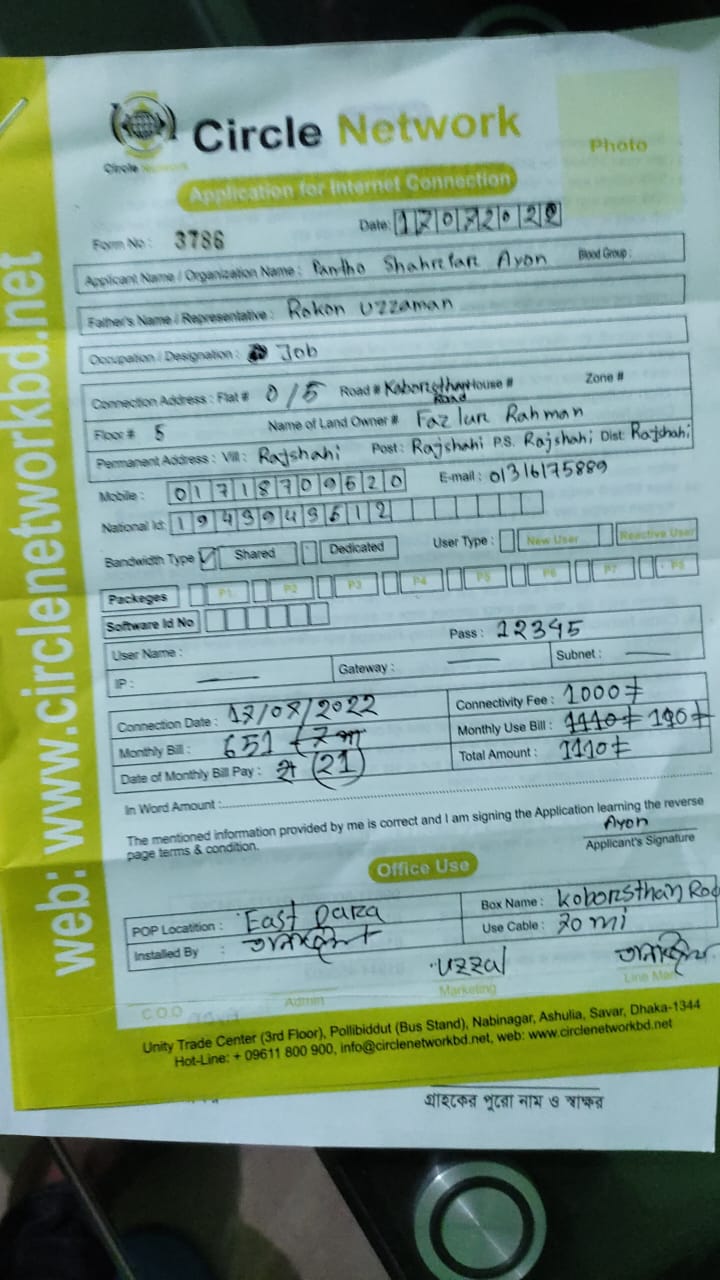 Circle Network
Circle Network
Photo
Application for Internet Connection
Form No: 3786 Date: 17072022
Applicant Name / Organization Name: Pantho Shahrear Ayon Blood Group:
Father's Name / Representative: Rokon Uzzaman
Occupation / Designation: Job
Connection Address: Flat # 0/5 Road # Koborsthan Road House # Zone #
Floor # 5 Name of Land Owner # Fazlur Rahman
Permanent Address: Vill: Rajshahi Post: Rajshahi P.S. Rajshahi Dist: Rajshahi
Mobile: 01718709620 E-mail: 01316175889
National Id: 1949943612
Bandwidth Type ✓ Shared Dedicated User Type: New User Reactive User
Packeges P1 P2 P3 P4 P5 P6 P7 P8
Software Id No
User Name: Pass: 12345
IP: — Gateway: — Subnet: —
Connection Date: 17/07/2022 Connectivity Fee: 1000
Monthly Bill: 651 Monthly Use Bill: 1110
Date of Monthly Bill Pay: (21) Total Amount: 1110
In Word Amount:
The mentioned information provided by me is correct and I am signing the Application learning the reverse
page terms & condition.
Ayon
Applicant's Signature
Office Use
POP Locatition: East Para Box Name: Koborsthan Roa
Installed By: Use Cable: 70 mi
Uzzal
C.O.O Admin Marketing Line Man
Unity Trade Center (3rd Floor), Pollibiddut (Bus Stand), Nabinagar, Ashulia, Savar, Dhaka-1344
Hot-Line: + 09611 800 900, info@circlenetworkbd.net, web: www.circlenetworkbd.net
গ্রাহকের পুরো নাম ও স্বাক্ষর
web: www.circlenetworkbd.net